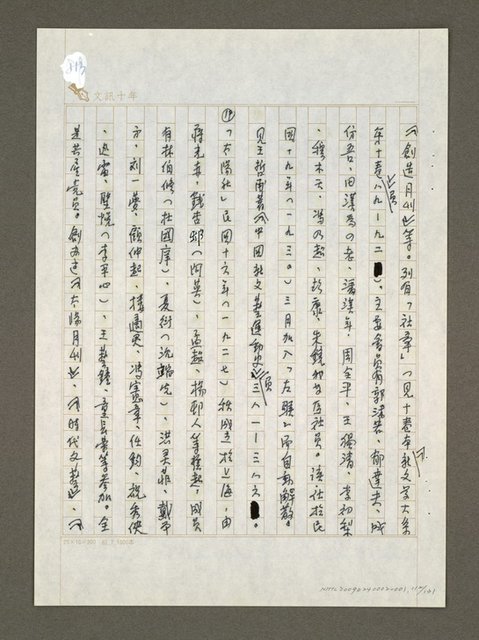 文訊十年
《創造月刊》等。列有「社章」(見十卷本《新文學大系》
第十卷頁八九一九二)、主要會員有郭沫若、郁達夫、成
仿吾、田漢為元老、潘漢年、周全平、王獨清、李初梨
、穆木天、馮乃超、彭康、朱鏡我等為社員。該社於民
國十九年(一九三〇)三月加入「左聯」而自動解散。
見王哲甫著《中國新文藝運動史》頁三八一—三八六。
「太陽社」民國十六年(一九二七)秋成立於上海,由
蔣光赤、錢杏邨(阿英)、孟超、楊邨人等發起,成員
有林伯修(杜國庠)、夏衍(沈端先)、洪靈菲、戴平
万、劉一夢、顧仲起、樓適夷、馮憲章、任鈞、祝秀俠
、迅雷、聖悅(李平心)、王藝鐘、童長榮等參加。全
是共產黨員。創辦過《太陽月刊》、《時代文藝》、《
25×12=300